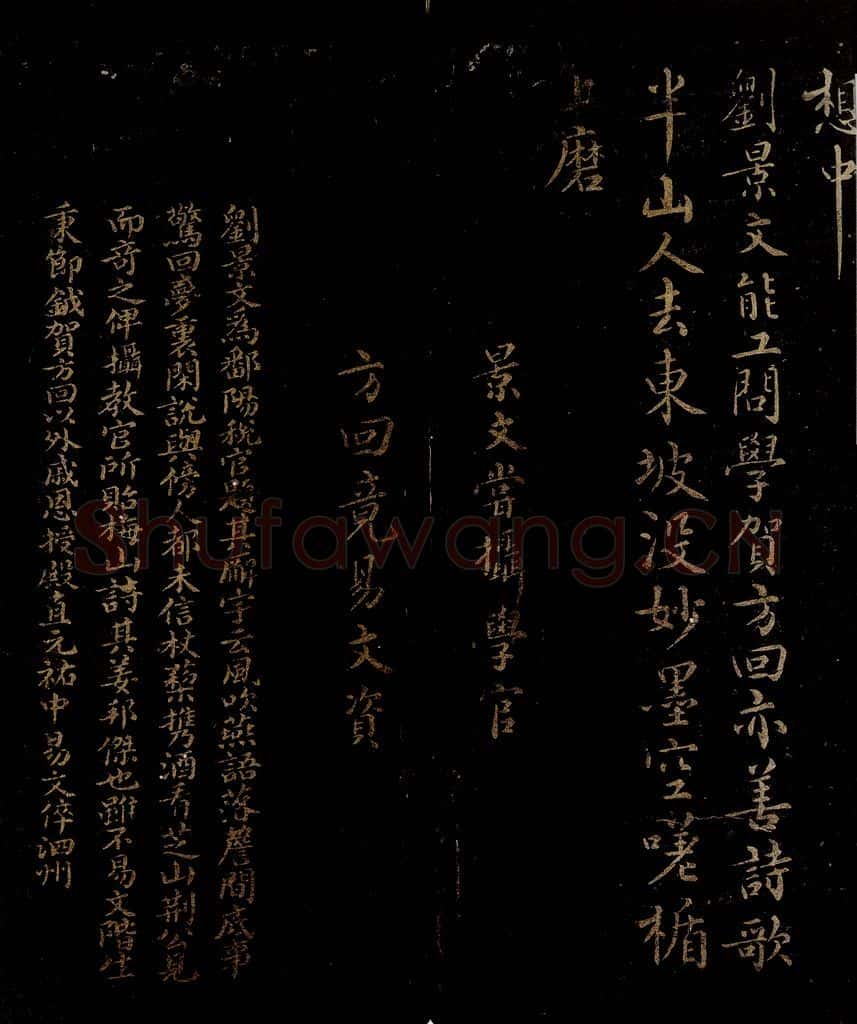 想中
劉景文能工問學賀方回亦善詩歌
半山人去東坡沒妙墨空嗟楯
上磨
景文嘗攝學官
方回竟易文資
劉景文為鄱陽稅官題其廳字云風吹燕語落簷間底事
驚回夢裏閑說與傍人都未信杖藜攜酒看芝山荊公見
而奇之俾攝教官所貽梅山詩其姜邦傑也雖不易文階生
秉節鉞賀方回以外戚恩授殿直元祐中易文倅泗州
Shufawang.CN